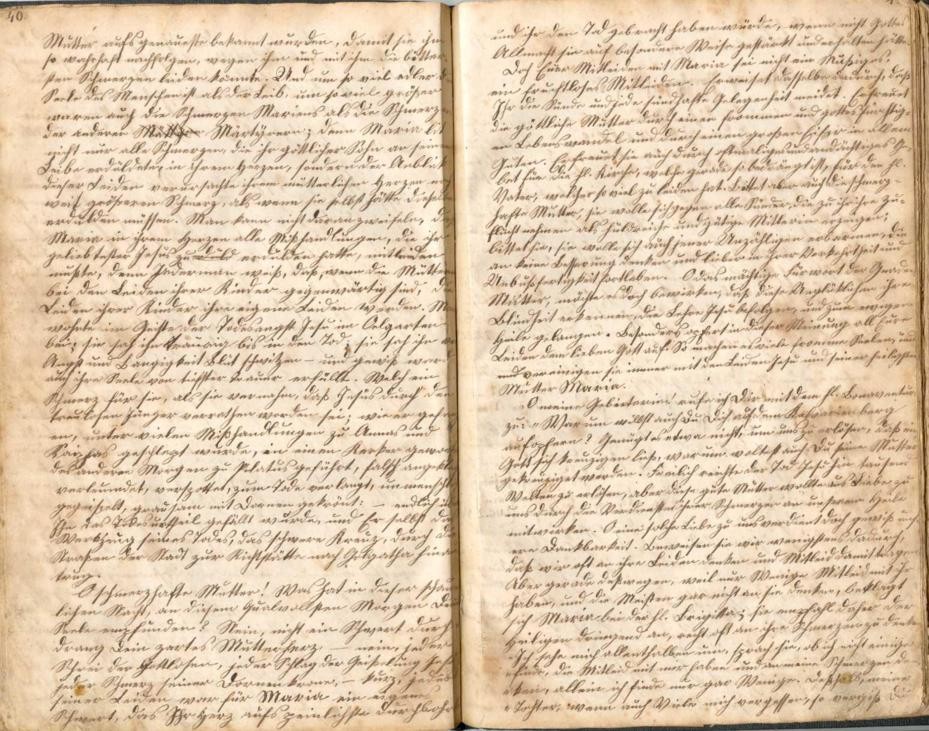 40
Mutter aufs genaueste bekannt wurden, damit sie ihm
so wahrhaft nachfolgen, wegen ihm und mit ihm die bitter-
sten Schmerzen leiden könnte. Und um so viel edler die
Seele des Menschen ist als der Leib, um so viel größer
waren auch die Schmerzen Mariens als die Schmerzen
der anderen Märtyrer; denn Maria litt
nicht nur alle Schmerzen, die ihr göttlicher Sohn an seinem
Leibe erduldete, in ihrem Herzen, sondern der Anblick
dieser Leiden verursachte ihrem mütterlichen Herzen
weit größeren Schmerz, als wenn sie selbst hätte dieselben
erdulden müssen. Man kann nicht daran zweifeln, daß
Maria in ihrem Herzen alle Mißhandlungen, die ihr
geliebtester Jesus erduldet hatte, mitleiden
mußte, denn Jedermann weiß, daß, wenn die Mütter
bei den Leiden ihrer Kinder gegenwärtig sind, die
Leiden ihrer Kinder ihre eigenen Leiden werden.
wohnte im Geiste der Todesangst Jesu im Oelgarten
bei; sie sah ihn traurig bis in den Tod, sie sah ihn vor
Angst und Bangigkeit Blut schwitzen – und gewiß ward
auch ihre Seele von tiefster Trauer erfüllt. Welch ein
Schmerz für sie, als sie vernahm, daß Jesus durch den
treulosen Jünger verrathen worden sei; wie er
unter vielen Mißhandlungen zu Annas und
Kaiphas geschleppt wurde, in einen Kerker geworfen
des anderen Morgen zu Pilatus geführt, falsch angeklagt
verleumdet, verspottet, zum Tode verlangt, unmenschlich
gegeißelt, grausam mit Dornen gekrönt – endlich
das Todesurtheil gefällt wurde, und Er selbst das
Werkzeug seines Todes, das schwere Kreuz, durch die
Straßen der Stadt zur Richtstätte nach Golgatha hinaus
trug.
O schmerzhafte Mutter! Was hat in dieser
lichen Nacht, an diesem qualvollsten Morgen Deine
Seele empfunden? Nein, nicht ein Schwert durch-
drang Dein zartes Mutterherz – nein, jeder
Schrei der Gottlosen, jeder Schlag der Geißelung
jeder Schmerz seiner Dornenkrone, – kurz, jedes
seiner Leiden war für Maria ein eigenes
Schwert, das Ihr Herz aufs peinlichste durchbohrte
und ihr den Tod gebracht haben würde, wenn nicht Gottes
Allmacht sie auf besondere Weise gestärkt und erhalten hätte.
Doch Euer Mitleiden mit Maria sei nicht ein müßiges,
ein fruchtloses Mitleiden. Erweiset dasselbe dadurch, daß
Ihr die Sünde und jede sündhafte Gelegenheit meidet. Erfreuet
die göttliche Mutter durch einen frommen und gottesfürchtig-
en Lebenswandel und durch einen großen Eifer in allem
Guten. Erfreuet sie auch durch oftmaliges und andächtiges Ge-
bet für die hl. Kirche, welche gerade so bedrängt ist, für den hl.
Vater, welcher so viel zu leiden hat. Bittet aber auch die schmerz-
hafte Mutter, sie wolle sich gegen alle Sünder, die zu ihr ihre Zu-
flucht nehmen als huldreiche und gütige Mutter erzeigen;
bittet sie, sie wolle sich auch jener Unzähligen erbarmen, die
an keine Besserung denken und lieber in ihrer Verkehrtheit und
Unbußfertigkeit fortleben. O das mächtige Fürwort der Gnaden-
Mutter, möchte es doch bewirken, daß diese Unglücklichen ihre
Blindheit erkennen, die Lehre Jesu befolgen, und zum ewigen
Heile gelangen. Besonders opfert in dieser Meinung all Eure
Leiden dem lieben Gott auf. So machen es viele fromme Seelen, und
und vereinigen sie immer mit den Leiden Jesu und seiner heiligsten
Mutter Maria.
O meine Gebieterin! rufe ich Dir mit dem hl. Bonaventura
zu: Warum willst auch Du Dich auf dem Kalvarienberg
aufopfern? Genügt es etwa nicht, um uns zu erlösen, daß ein
Gott sich kreuzigen ließ, warum wolltest auch Du seine Mutter
gekreuziget werden? Freilich reichte der Tod Jesu hin tausend
Welten zu erlösen, aber diese gute Mutter wollte aus Liebe zu
uns durch die Verdienste ihrer Schmerzen an unserem Heile
mitwirken. O eine solche Liebe zu uns verdient doch gewiß uns-
ere Dankbarkeit. Beweisen sie wir wenigstens dadurch,
daß wir oft an ihre Leiden denken und Mitleid damit tragen.
Aber gerade deßwegen, weil nur Wenige Mitleid mit ihr
haben, und die Meisten gar nicht an sie denken, beklagt
sich Maria bei der hl. Brigitta; sie empfahl daher der
Heiligen dringend an, recht oft an ihre Schmerzen zu denken.
Ich sehe mich allenthalben um, sprach sie, ob ich nicht einige
finde, die Mitleid mit mir haben und an meine Schmerzen den-
ken, allein ich finde nur gar Wenige. Deßhalb, meine
Tochter, wenn auch Viele mich vergessen, so vergiß